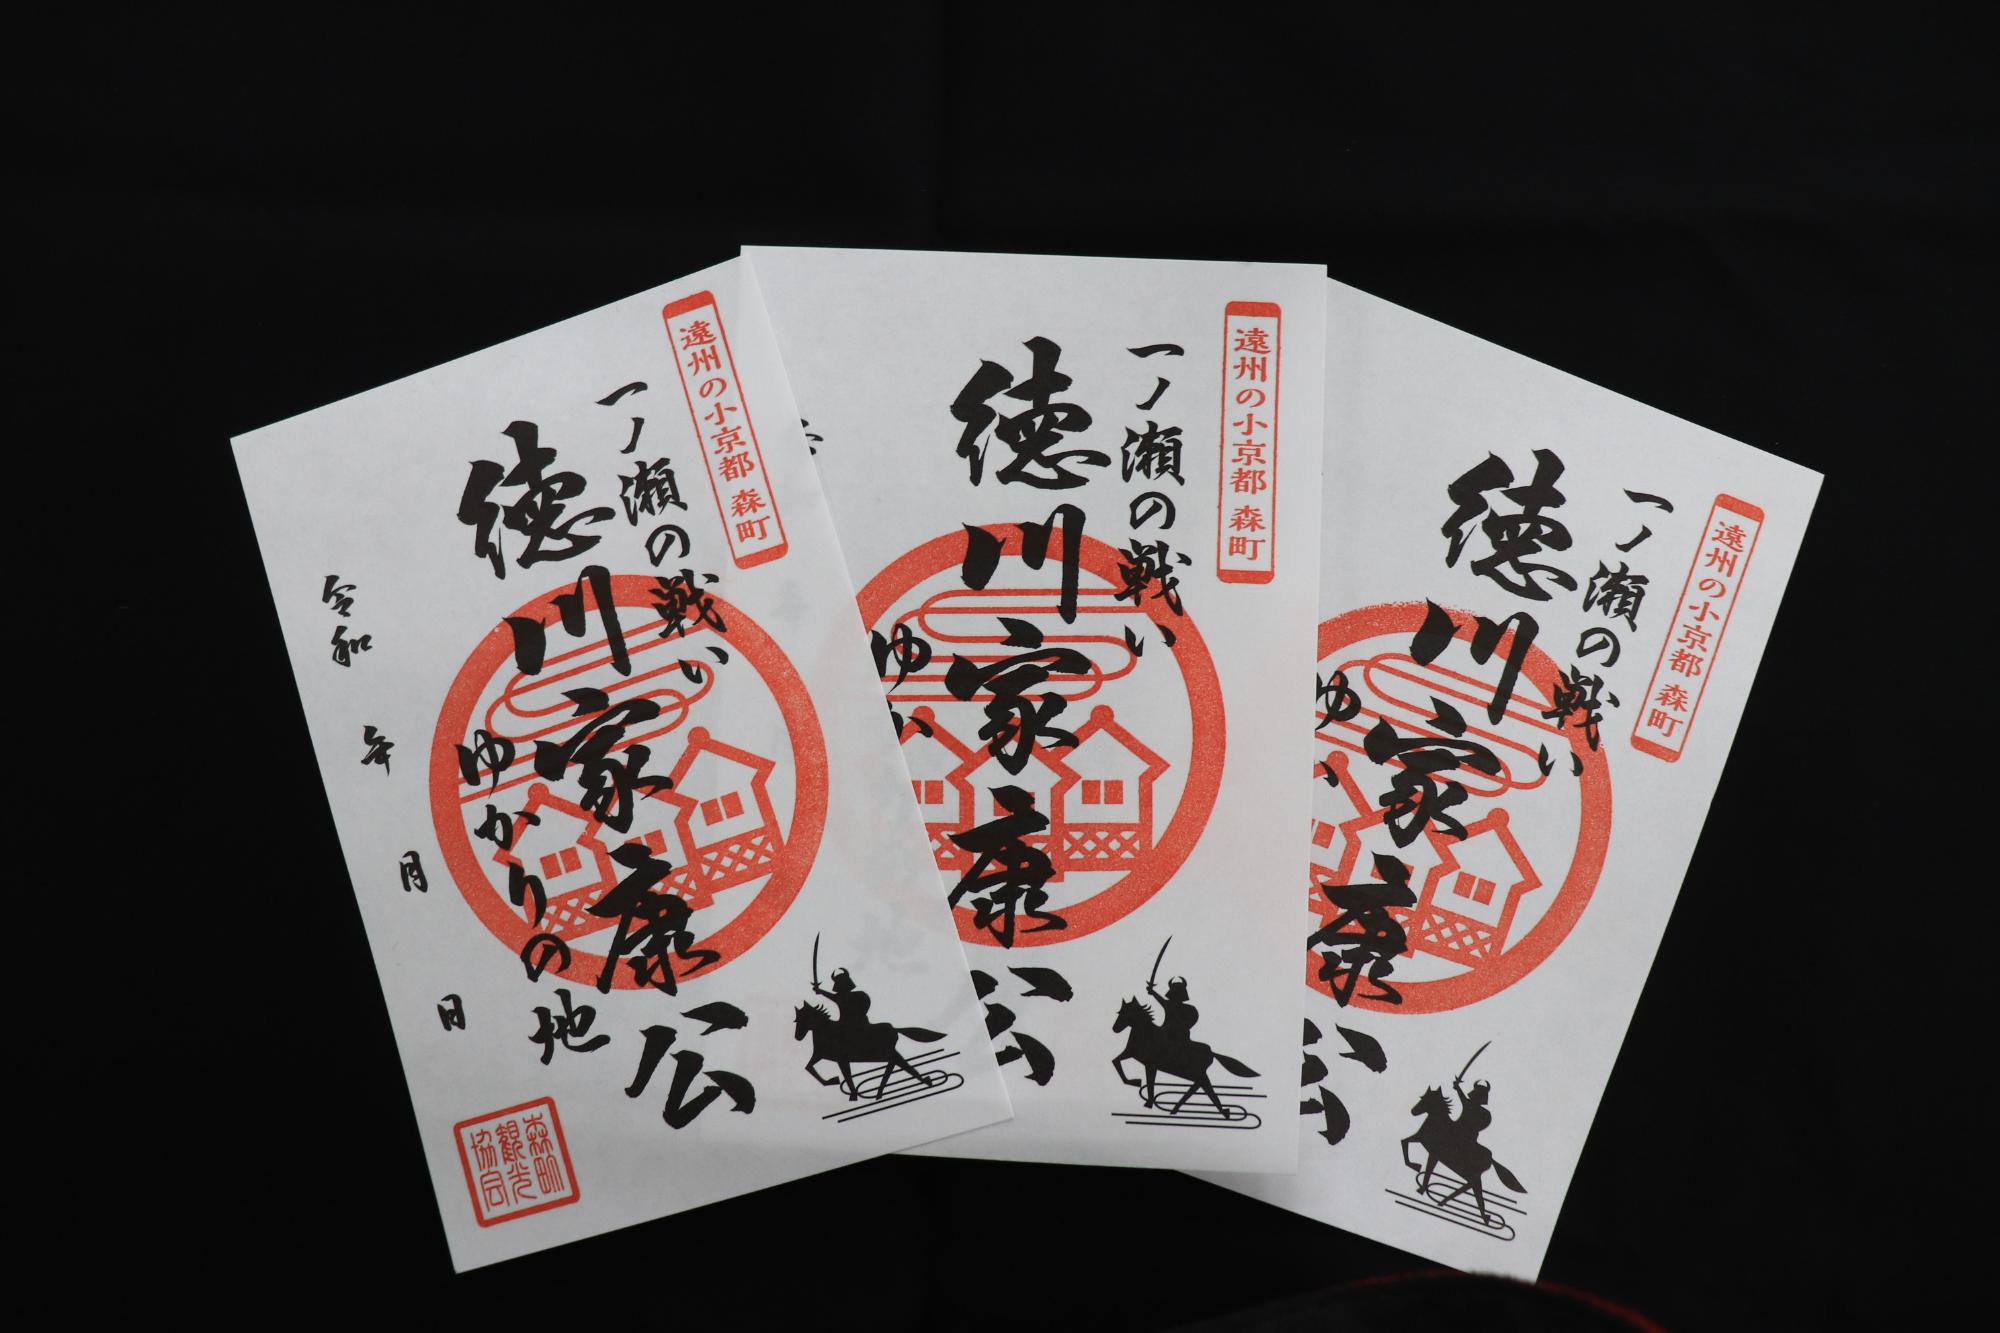 遠州の小京都 森町
一ノ瀬の戦い
徳川家康公
ゆかりの地
令和 年 月 日
森町観光協会
遠州の小京都 森町
一ノ瀬の戦い
徳川家康公
ゆか
遠州の小京都 森町
一ノ瀬の戦い
徳川家康公
ゆか